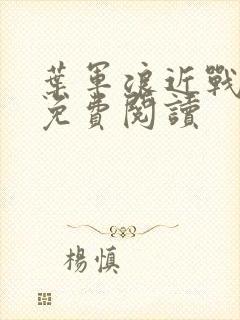 葉軍浪近戰
免費閱讀
楊慎